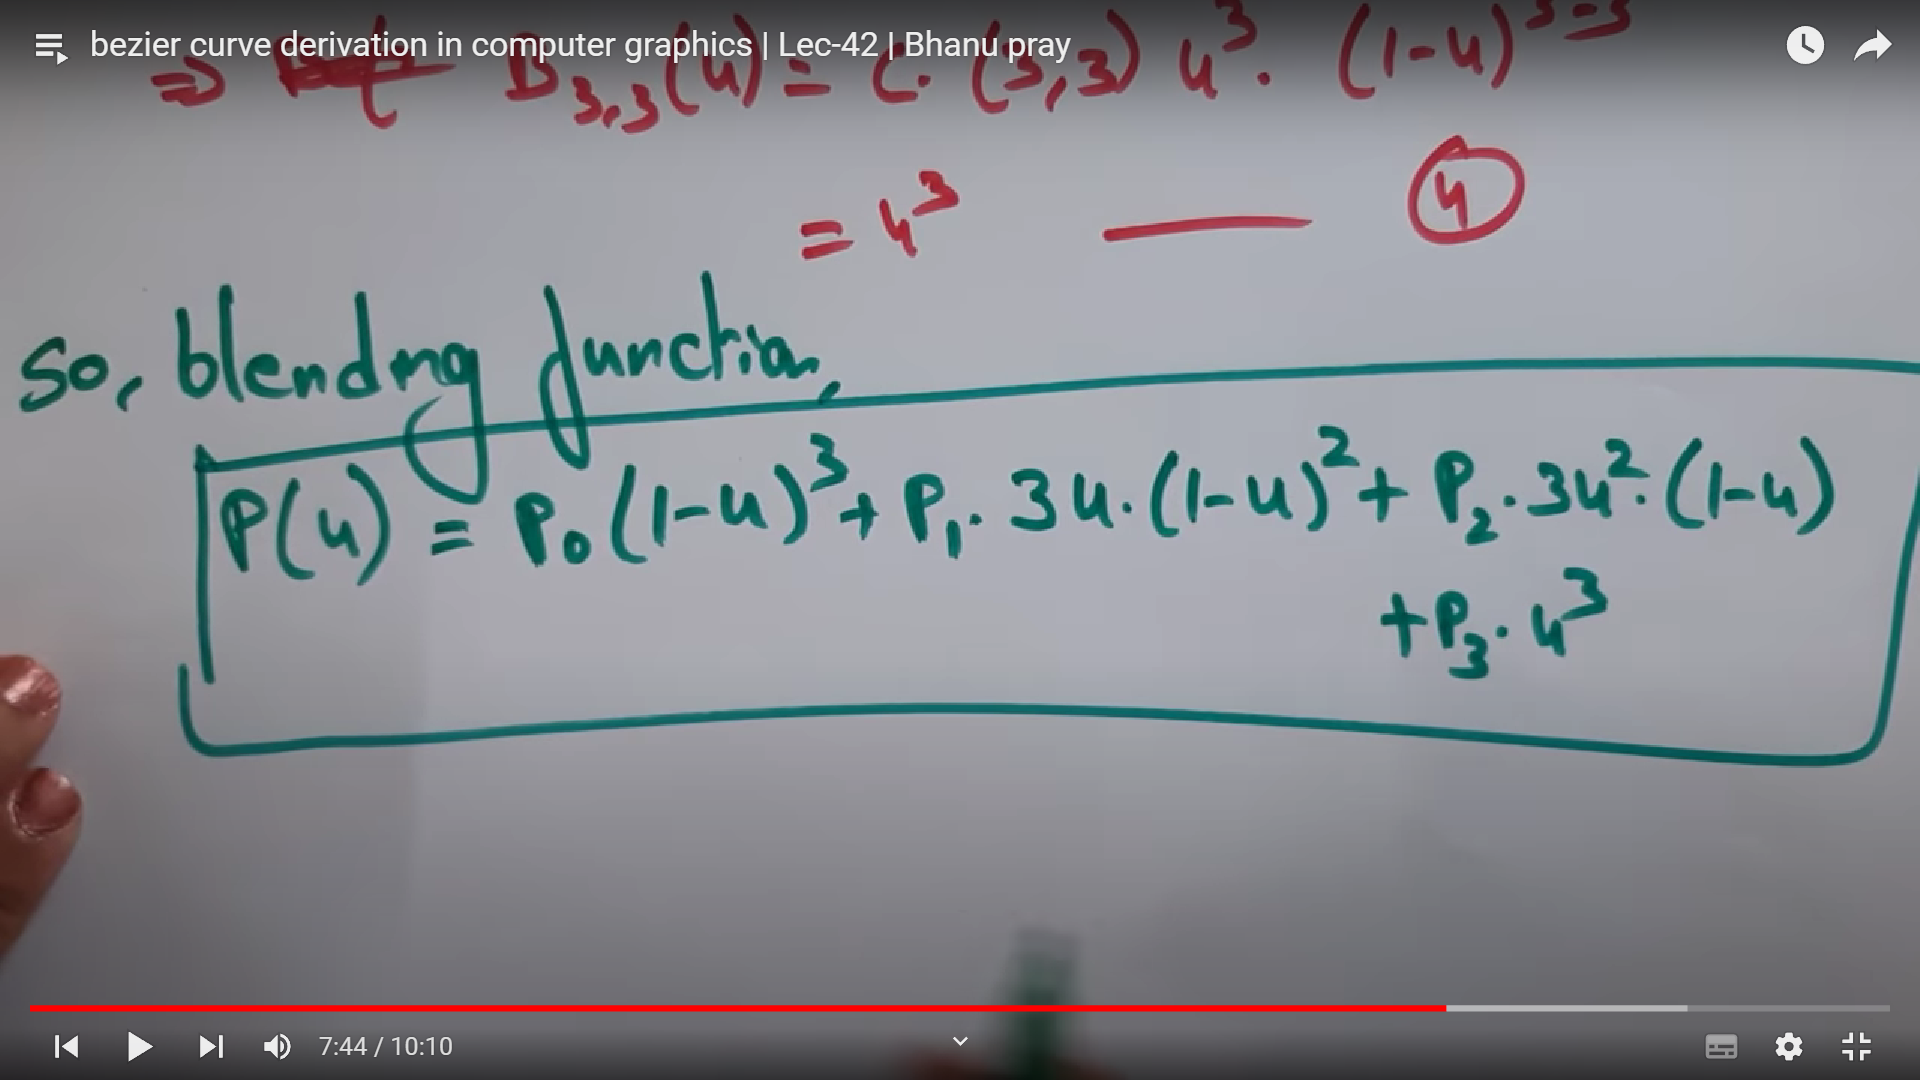 bezier curve derivation in computer graphics | Lec-42 | Bhanu pray
⇒ B₃,₃(u) = C. (3,3) u³. (1-u)³⁻³
= u³ —— ④
So, blending function,
P(u) = P₀(1-u)³ + P₁. 3u.(1-u)² + P₂.3u².(1-u)
+P₃.u³
7:44 / 10:10